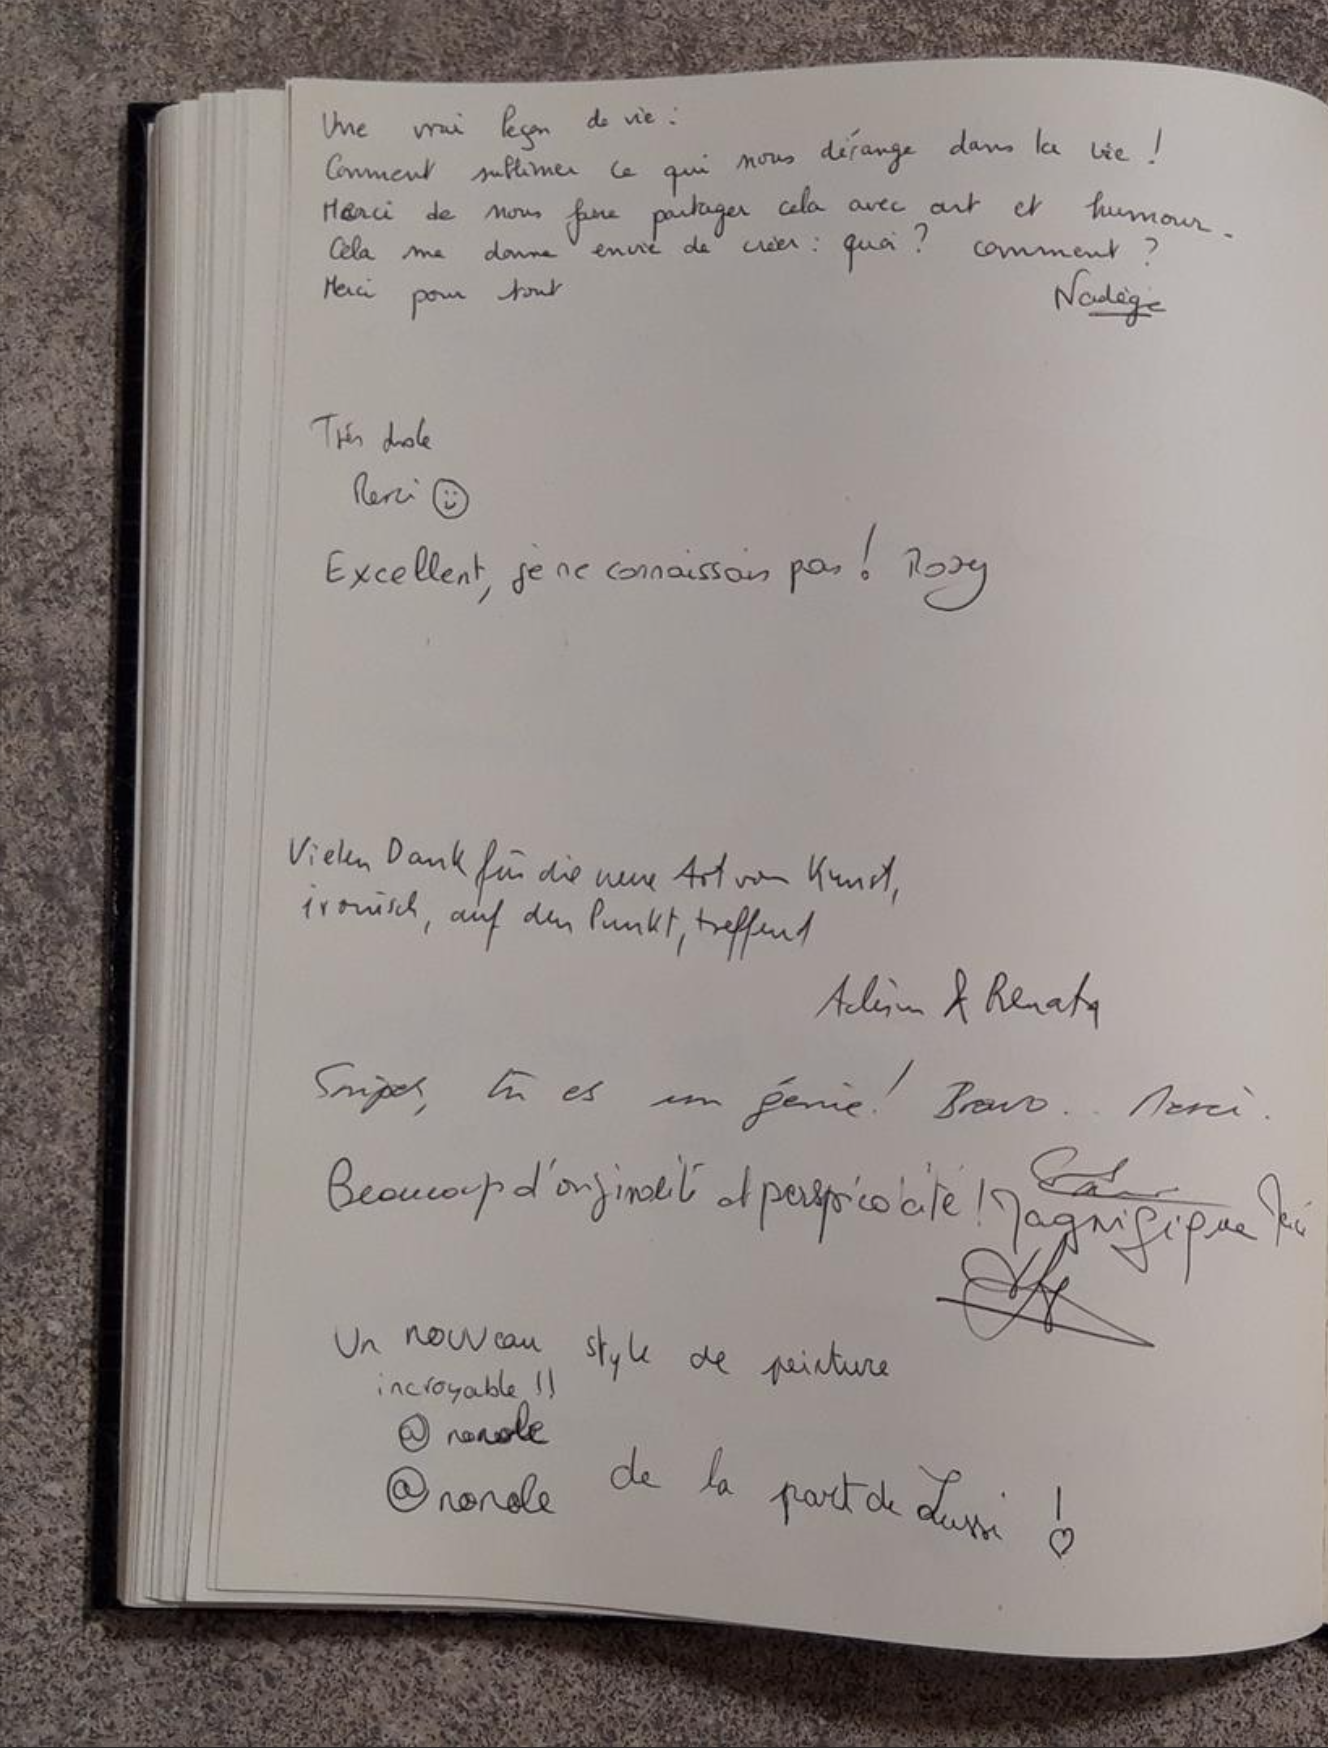 Une vrai leçon de vie :
Comment sublimer ce qui nous dérange dans la vie !
Merci de nous faire partager cela avec art et humour.
Cela me donne envie de créer : quoi ? comment ?
Merci pour tout
Nadège
Très drole
Merci ☺
Excellent, je ne connaissais pas ! Rosy
Vielen Dank für die neue Art von Kunst,
ironisch, auf den Punkt, treffend
& Renata
tu es un génie ! Bravo.. Merci.
Beaucoup d'originalité et perspicacité !
Magnifique Merci
Un nouveau style de peinture
incroyable !!
@nonole
@nonole de la part de Lussi ! ♡